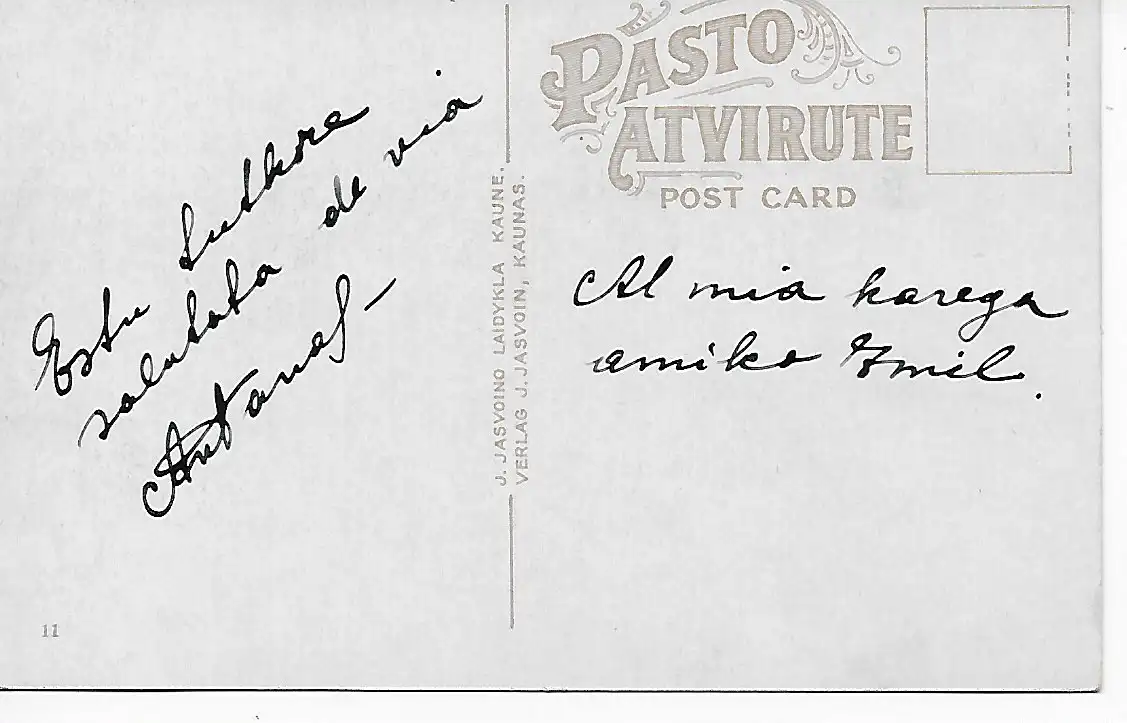 PASTO
ATVIRUTE
POST CARD
Estu tutkore
salutata de via
Antanas –
J. JASVOINO LAIDYKLA KAUNE.
VERLAG J. JASVOIN, KAUNAS.
Al mia karega
amiko Emil.
11